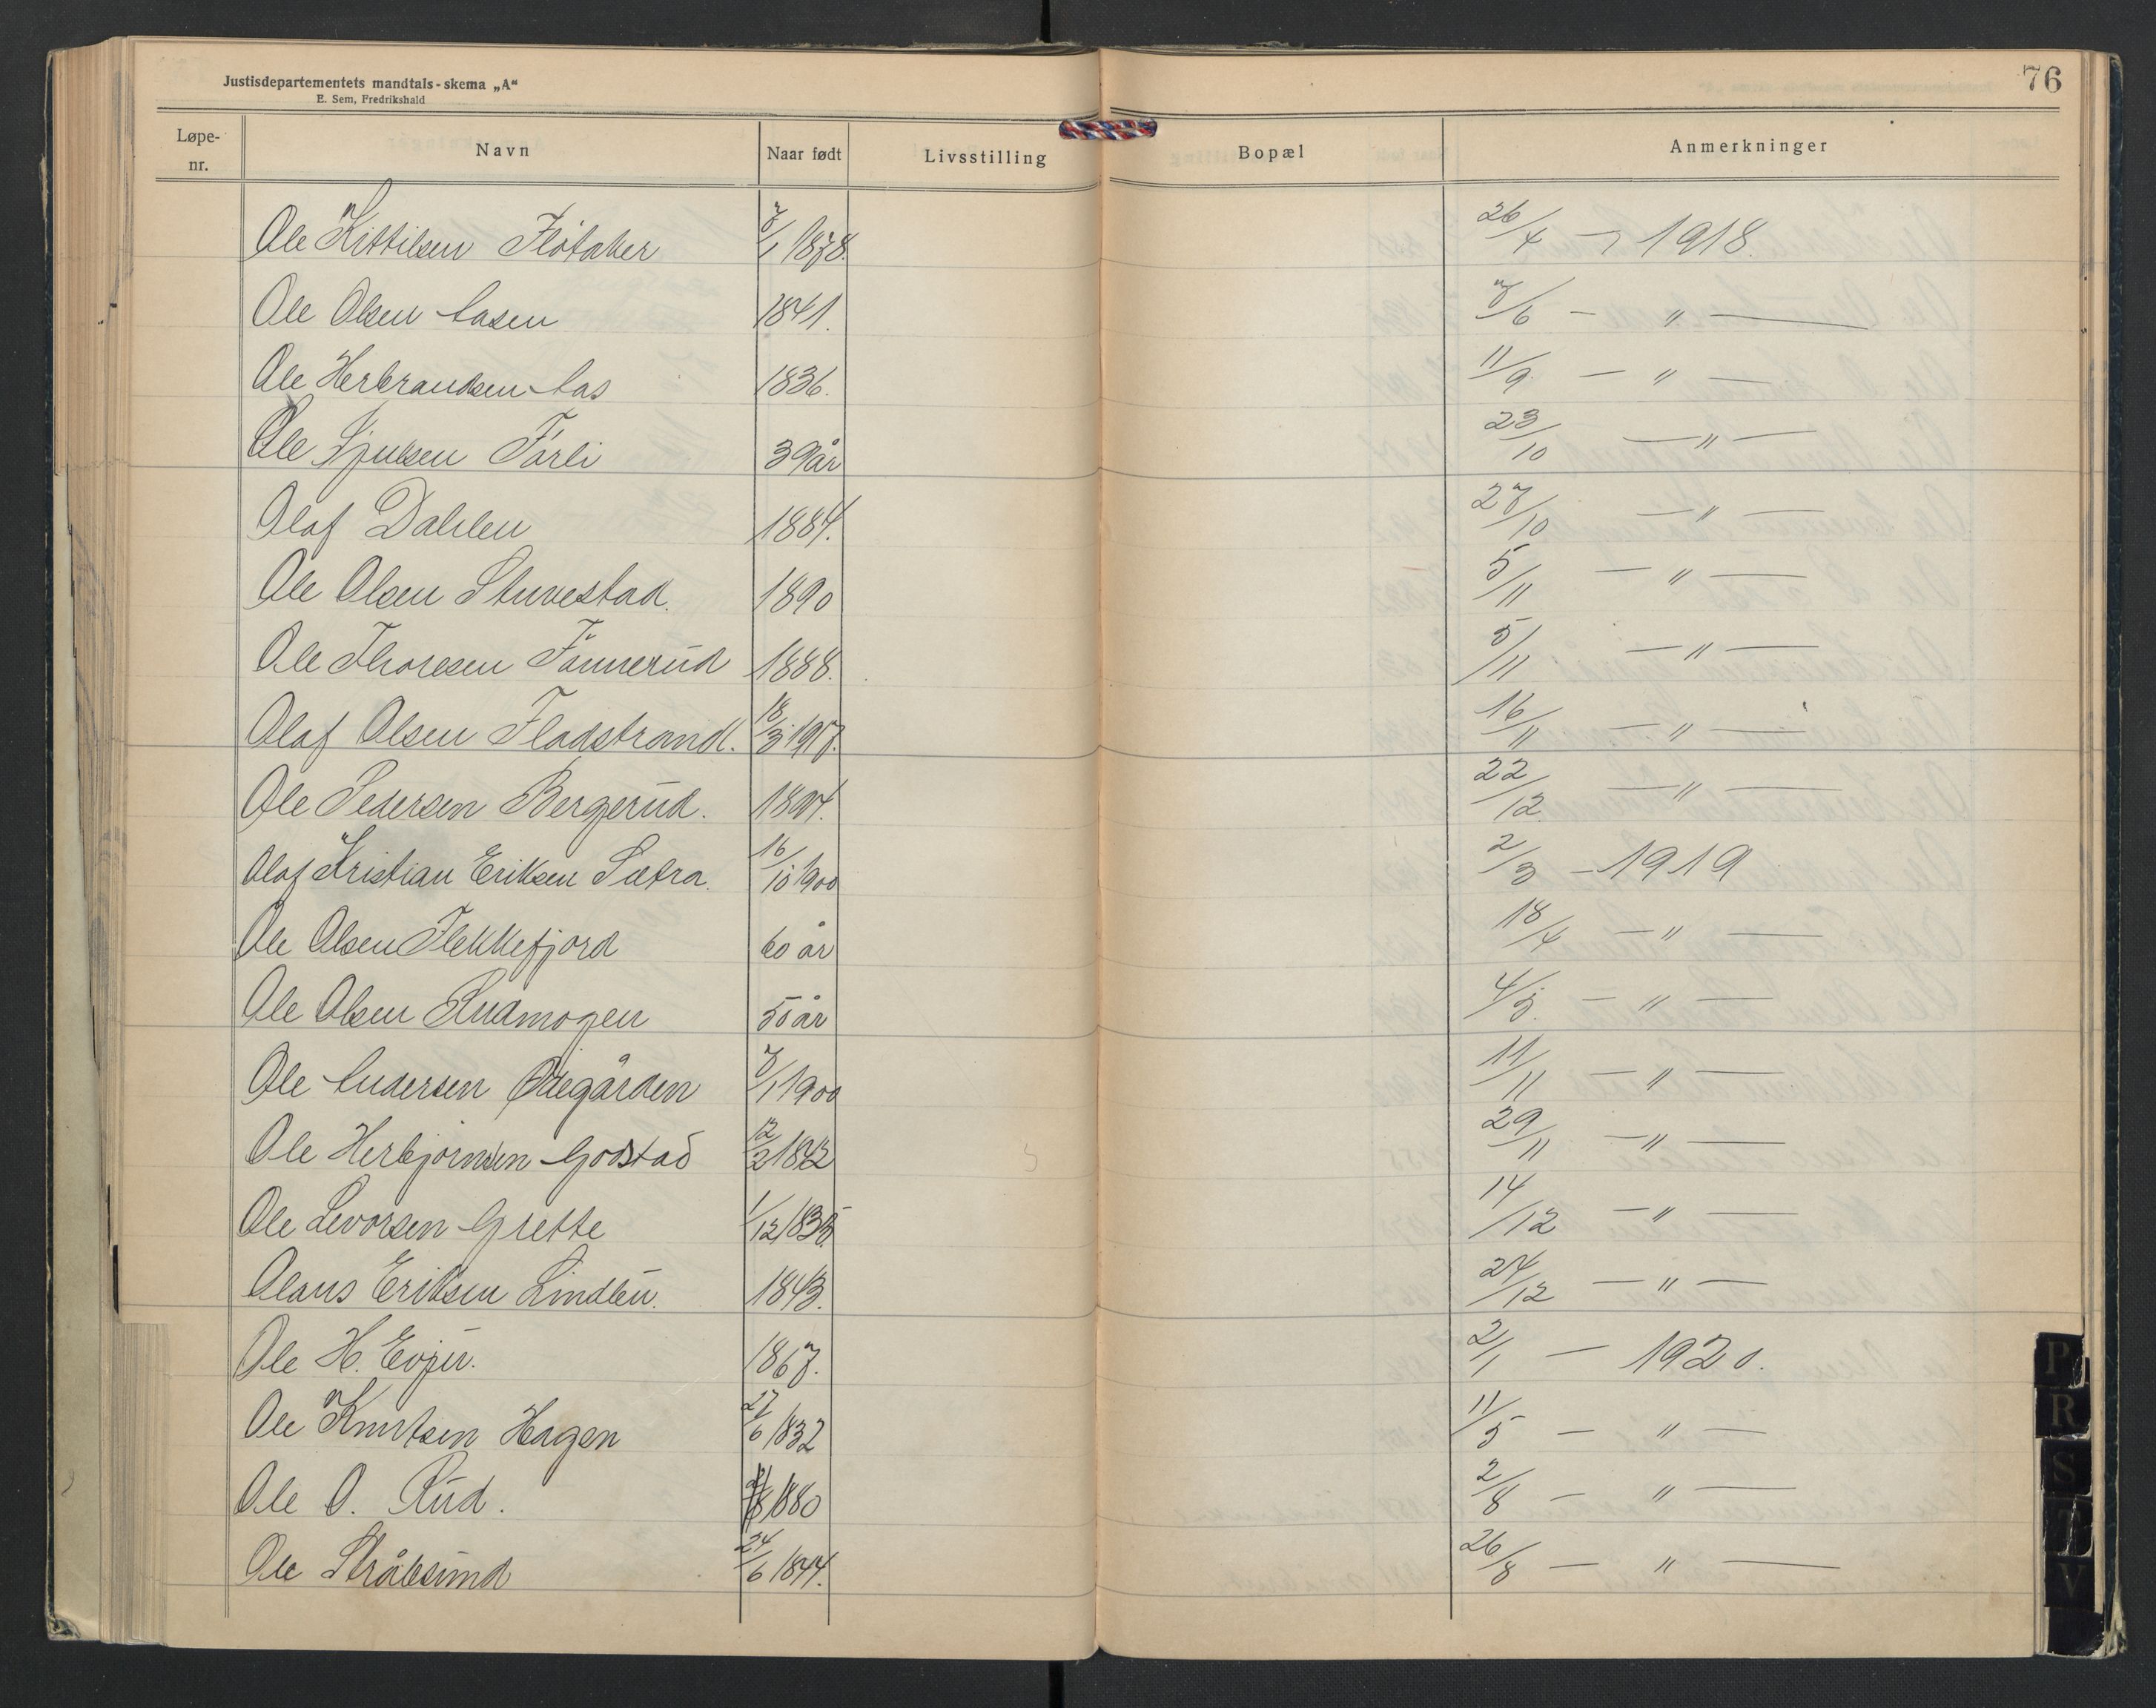 Justisdepartementets mandtals-skema „A“
E. Sem, Fredrikshald
76
Løpe-nr. Navn Naar født Livsstilling Bopæl Anmerkninger
Ole Kittilsen Fløtaker 7/1 1878. 26/4 - 1918.
Ole Olsen Aasen 1841. 7/6 - " -
Ole Herbrandsen Aas 1836. 11/9. - " -
Ole Sjulsen Førli 39 år 23/10 - " -
Olaf Dahlen 1884. 27/10 - " -
Ole Olsen Stuvestad. 1890 5/11 - " -
Ole Thoresen Tønnerud 1888. 5/11 - " -
Olaf Olsen Fladstrand. 18/3 1917. 16/11 - " -
Ole Pedersen Bergerud. 22/12 - " -
Olaf Kristian Eriksen Sætra. 16/10 1900 2/3 - 1919
Ole Olsen Flekkefjord 60 år 18/4 - " -
Ole Olsen Rudmogen 50 år 4/5. - " -
Ole Andersen Ødegården 7/1 1900 11/11 - " -
Ole Herbjørnsen Godstad 12/2 1842 29/11 - " -
Ole Levorsen Grette 1/12 1835. 14/12 - " -
Olaus Eriksen Lindlēu. 1843. 24/12 - " -
Ole H. Evju. 1867. 2/1 - 1920.
Ole Knutsen Hagen 27/6 1832 11/5 - " -
Ole O. Rud. 1880 2/8 - " -
Ole Stråbsund 24/6 1844. 26/8 - " -
P
R
S
T
V